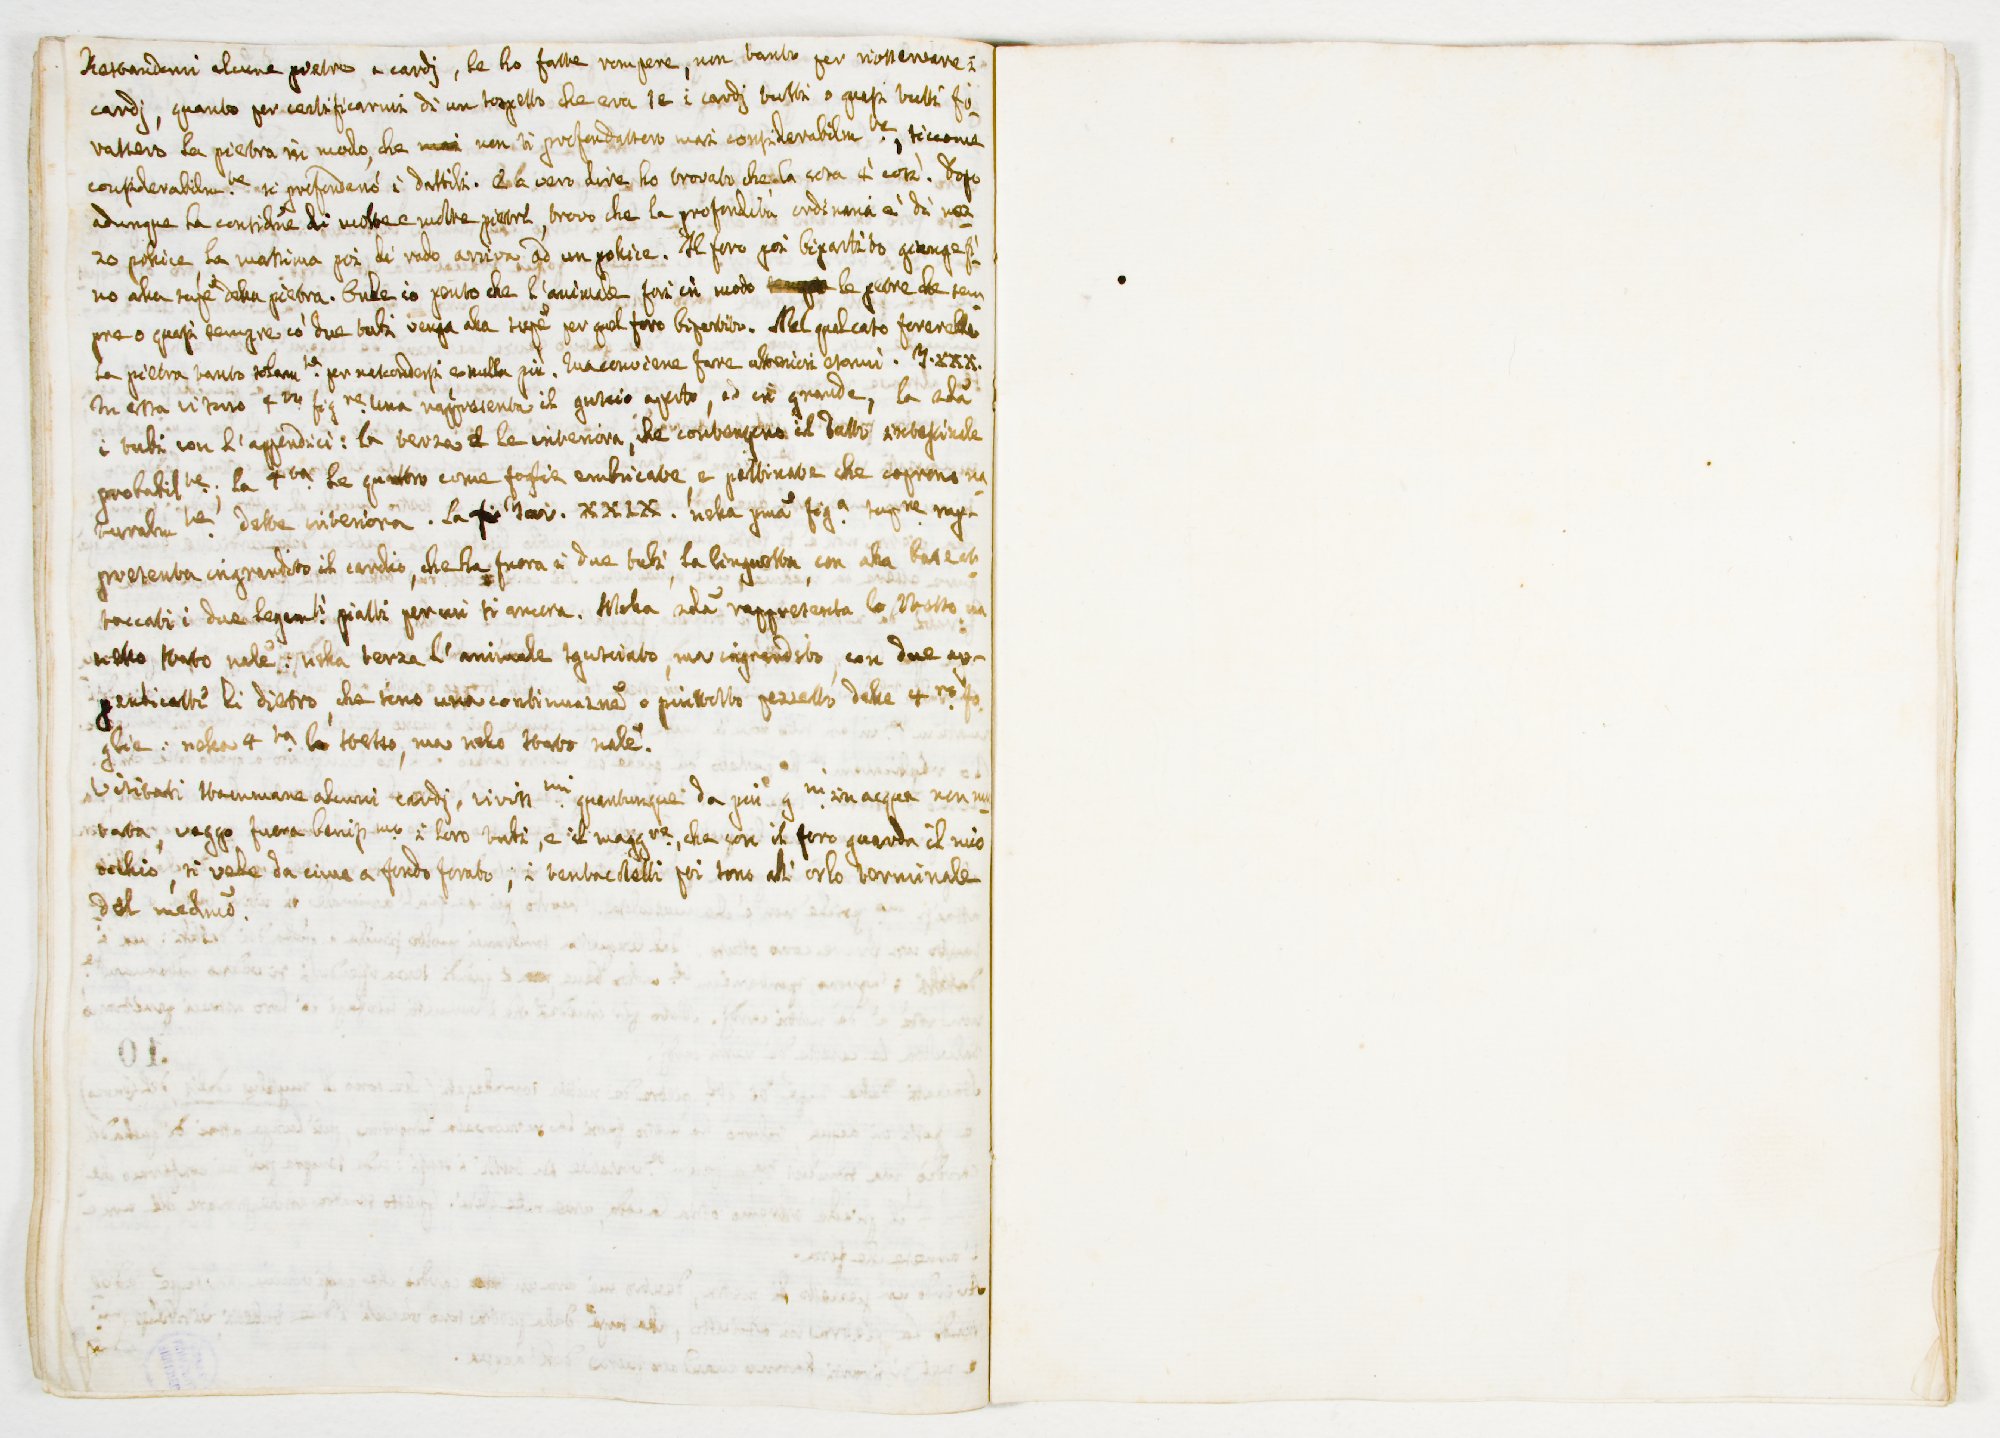 Restandomi alcune pietre a cardj, le ho fatte rompere, non tanto per riosservare i
cardj, quanto per certificarmi di un sospetto che era se i cardj tutti o quasi tutti fo-
rassero la pietra in modo, che non si profondassero mai considerabilm.te, siccome
considerabilm.te si profondano i dattili. E a vero dire ho trovato che la cosa è così. Dopo
adunque la considne di molte e molte pietre, trovo che la profondità ordinaria è di mez-
zo pollice, la massima poi di rado arriva ad un pollice. Il foro poi bipartito giunge fi-
no alla supfe della pietra. Onde io penso che l'animale fori in modo le pietre che sem
pre o quasi sempre co' due tubi venga alla supfe per quel foro bipartito. Nel qual caso forerebbe
la pietra tanto solam.te per nascondersi e nulla più. Ma conviene fare ulteriori esami. T. XXX.
In essa vi sono 4.ro fig.re una rappresenta il guscio aperto, ed in grande, la 2da
i tubi con l'appendici: la terza le interiora, che contengono il Tutto intestinale
probabil.te; la 4.ta le quattro come foglie embricate, e pettinate che coprono na
turalm.te dette interiora. La Tav. XXIX. nella pma fig.a supre rap-
presenta ingrandito il cardio, che ha fuora i due tubi, la linguetta, con alla base at
taccati i due legam.ti piatti per cui si ancora. Nella 2da rappresenta lo stesso ma
nello stato nale: nella terza l'animale sgusciato, ma ingrandito, con due ap-
penticelle lì dietro, che sono una continuazne o piuttosto pezzetto delle 4.ro fo
glie: nella 4.ta lo stesso, ma nello stato nale.
Visitati stacumane alcuni cardj, viviss.mi quantunque da più g.ni in acqua non mu
tata, veggo fuora beniss.mo i loro tubi, e il magg.re, che con il foro guarda il mio
occhio, si vede da cima a fondo forato; i tentacoletti poi sono all'orlo terminale
del medmo.